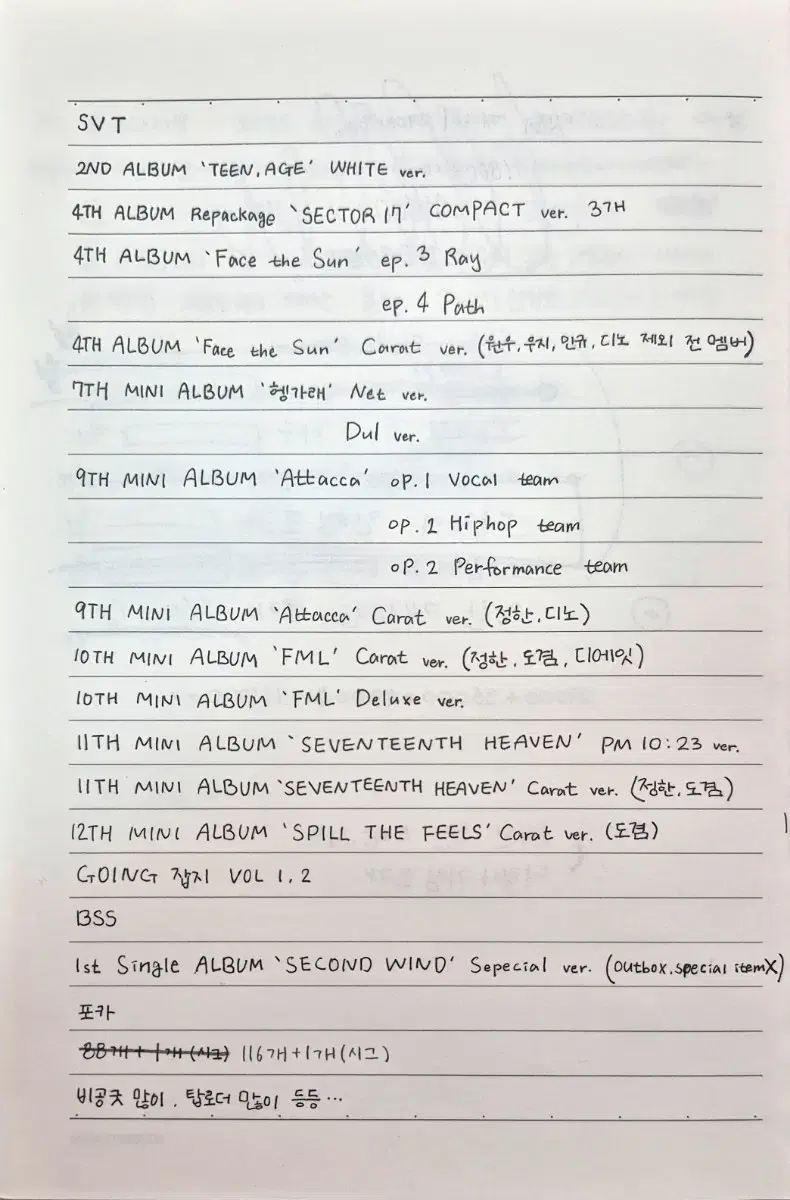 SVT
2ND ALBUM 'TEEN, AGE' WHITE ver.
4TH ALBUM Repackage 'SECTOR 17' COMPACT ver. 3개
4TH ALBUM 'Face the Sun' ep. 3 Ray
ep. 4 Path
4TH ALBUM 'Face the Sun' Carat ver. (원우, 우지, 민규, 디노 제외 전 멤버)
7TH MINI ALBUM '헹가래' Net ver.
Dul ver.
9TH MINI ALBUM 'Attacca' op. 1 Vocal team
op. 2 Hiphop team
op. 2 Performance team
9TH MINI ALBUM 'Attacca' Carat ver. (정한, 디노)
10TH MINI ALBUM 'FML' Carat ver. (정한, 도겸, 디에잇)
10TH MINI ALBUM 'FML' Deluxe ver.
11TH MINI ALBUM 'SEVENTEENTH HEAVEN' PM 10:23 ver.
11TH MINI ALBUM 'SEVENTEENTH HEAVEN' Carat ver. (정한, 도겸)
12TH MINI ALBUM 'SPILL THE FEELS' Carat ver. (도겸)
GOING 잡지 VOL 1, 2
BSS
1st Single ALBUM 'SECOND WIND' Sepecial ver. (outbox, special item X)
포카
88개 + 1개 (시그) 116개 + 1개 (시그)
비공굿 많이, 탑로더 많이 등등…